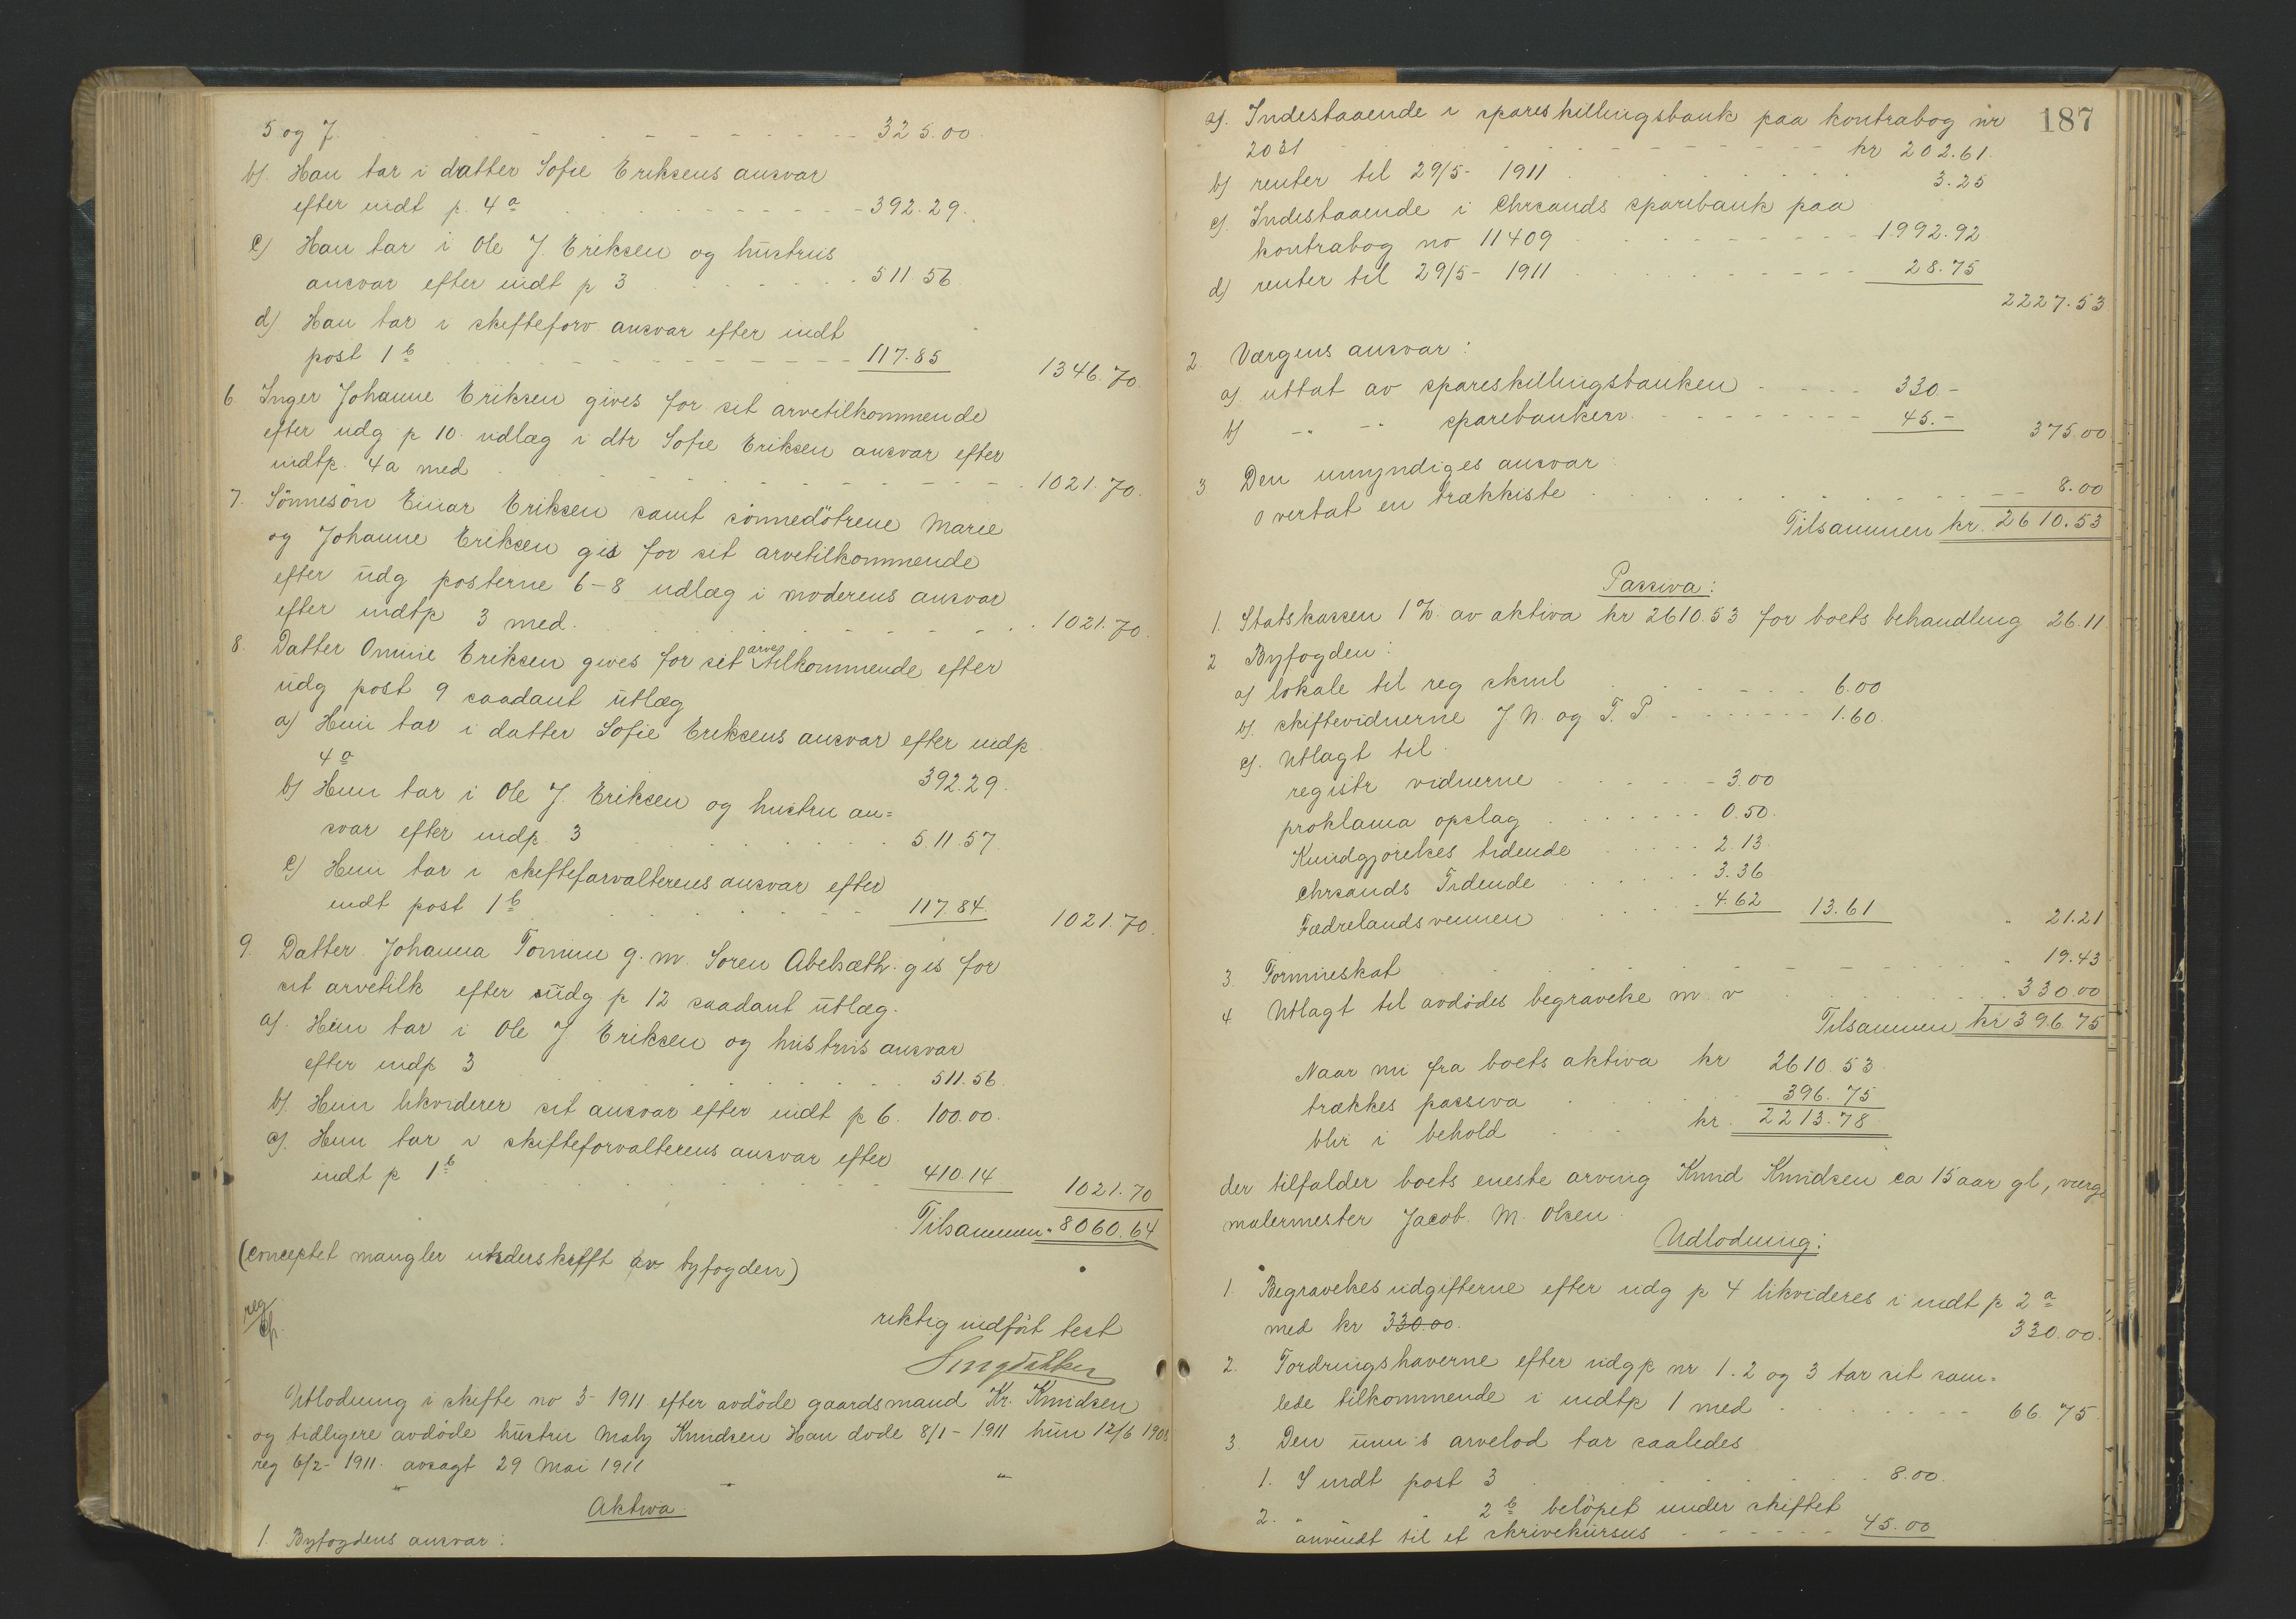 5 og 7. 325.00.
b). Han tar i datter Sofie Eriksens ansvar
efter indt p. 4a 392.29.
c) Han tar i Ole J. Eriksen og hustrus
ansvar efter indt p 3 511 56.
d) Han tar i skifteforv ansvar efter indt
post 1b 117.85 1346.70.
6. Inger Johanne Eriksen gives for sit arvetilkommende
efter udg p 10. udlæg i dtr Sofie Eriksen ansvar efter
indtp. 4a med 1021.70.
7. Sönnesön Einar Eriksen samt sönnedötrene Marie
og Johanne Eriksen gis for sit arvetilkommende
efter udg posterne 6-8 udlæg i moderens ansvar
efter indtp 3 med. 1021.70.
8. Datter Ommie Eriksen gives for sit arvetilkommende efter
udg post 9 saadant utlæg
a) Hun tar i datter Sofie Eriksens ansvar efter indp
4a 392.29.
b) Hun tar i Ole J. Eriksen og hustru an=
svar efter indp. 3 511.57.
c) Hun tar i skifteforvalterens ansvar efter
indt post 1b 117.84. 1021.70.
9. Datter Johanna Tomine g. m. Soren Abelsæth. gis for
sit arvetilk efter udg p 12 saadant utlæg.
a). Hun tar i Ole J. Eriksen og hustrus ansvar
efter indp 3 511.56.
b). Hun likviderer sit ansvar efter indt p 6. 100.00.
c). Hun tar i skifteforvalterens ansvar efter
indt p 1b 410.14 1021.70
Tilsammen " 8060.64
(conceptet mangler underskrift av byfogden)
reg
riktig indfört test
Utlodning i skifte no 3- 1911 efter avdöde gaardsmand Kr. Knudsen
og tidligere avdöde hustru Maly Knudsen Han dode 8/1- 1911 hun 12/6 1908
reg 6/2- 1911. avsagt 29 Mai 1911
Aktiva
1. Byfogdens ansvar:
187
a). Indestaaende i spareskillingsbank paa kontrabog nr
2031 kr 202.61.
b) renter til 29/5- 1911 3.25
c). Indestaaende i Chrsands sparebank paa
kontrabog no 11409 1992.92
d) renter til 29/5- 1911 28.75
2227.53
2. Værgens ansvar:
a). uttat av spareskillingsbanken 330.-
b) -"- -"- sparebanken 45.- 375.00
3 Den umyndiges ansvar:
overtat en trækkiste 8.00
Tilsammen kr. 2610.53
Passiva:
1. Statskassen 1% av aktiva kr 2610.53 for boets behandling 26.11
2 Byfogden:
a) lokale til reg skml 6.00
b). skiftevidnerne J. N. og T. P 1.60.
c). Utlagt til
registr vidnerne 3.00
proklama opslag 0.50.
Kundgjörelses tidende 2.13.
Chrsands Tidende 3.36
Fædrelandsvennen 4.62 13.61 " 21.21
3. Formueskat " 19.43
4 Utlagt til avdödes begravelse m. v 330.00
Tilsammen kr 396.75
Naar nu fra boets aktiva kr 2610.53.
trækkes passiva 396.75
blir i behold kr. 2213.78
der tilfalder boets eneste arving Knud Knudsen ca 15 aar gl, værge
malermester Jacob. M. Olsen.
Udlodning:
1. Begravelsesudgifterne efter udg p 4 likvideres i indt p 2a
med kr 330.00. 330.00.
2. Fordringshaverne efter udgp nr 1. 2 og 3 tar sit sam=
lede tilkommende i indtp 1 med 66.75
3. Den um's arvelod tar saaledes
1. I indt post 3 8.00.
2. " " 2b belöpet under skiftet
anvendt til et skrivekursus 45.00